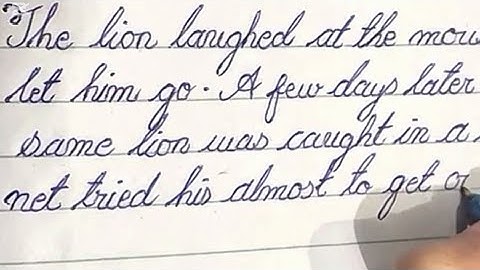 The lion laughed at the mou
let him go. A few days later
same lion was caught in a
net tried his almost to get o